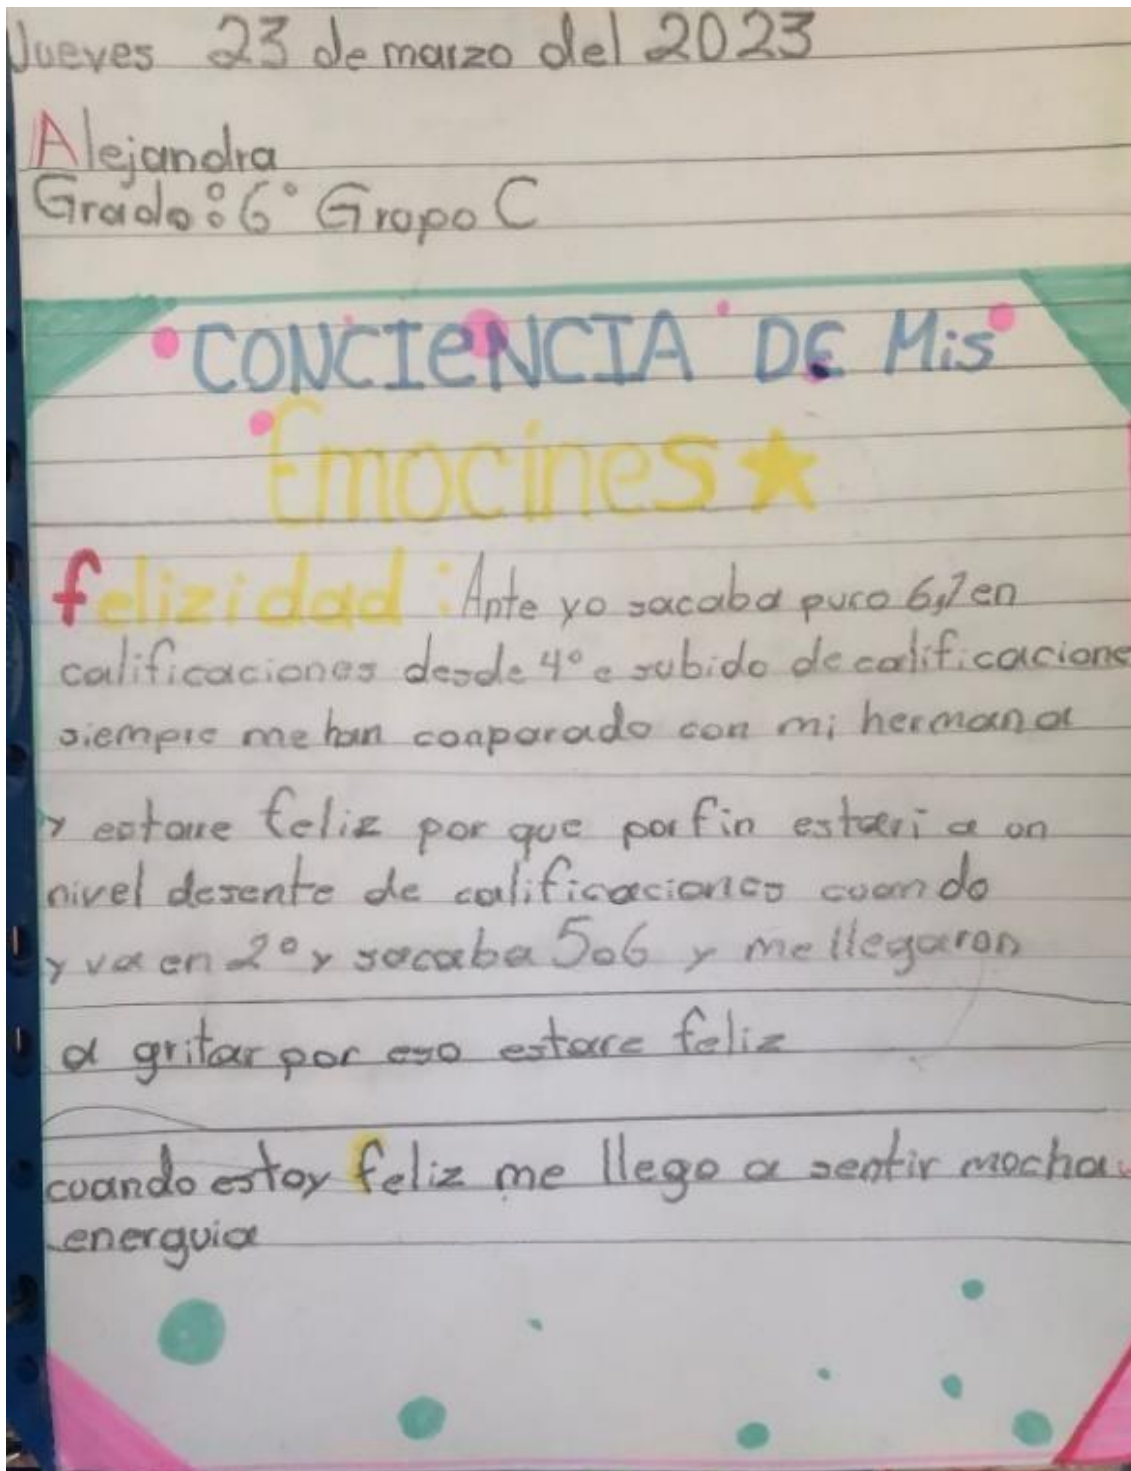 Jueves 23 de marzo del 2023
Alejandra
Grado: 6° Gropo C
CONCIENCIA DE Mis
Emocines
felizidad: Ante yo sacaba puro 6,7 en
calificaciones desde 4° e subido de calificacione
siempre me han conparado con mi hermana
y estare feliz por que porfin estari a on
nivel desente de calificaciones cuando
yva en 2° y sacaba 5 o 6 y me llegaron
a gritar por eso estare feliz
cuando estoy feliz me llego a sentir mocha
energuia